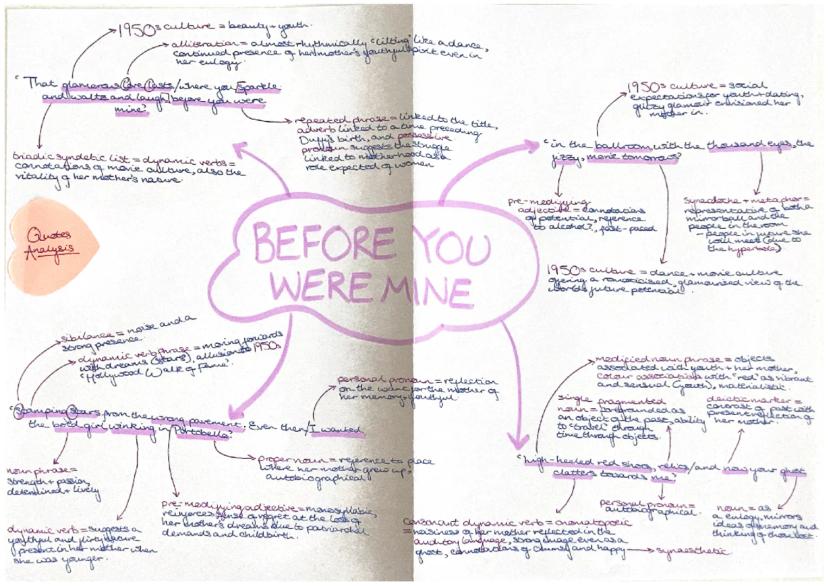 1950s culture = beauty + youth.
alliteration = almost rhythmically 'lilting' like a dance,
continued presence of her mother's youthful spirit even in
her eulogy.
"That glamorous love lasts/where you sparkle
and waltz and laugh/before you were
mine."
repeated phrase = linked to the title,
adverb linked to a time preceding
Duffy's birth, and possessive
pronoun suggests the struggle
linked to motherhood as a
role expected of women
triadic syndetic list = dynamic verbs =
connotations of movie culture, also the
vitality of her mother's nature
Quotes
Analysis
BEFORE YOU
WERE MINE
1950s culture = social
expectations for youth + dating,
glitzy glamour envisioned her
mother in.
"in the ballroom, with the thousand eyes, the
fizzy, movie tomorrows"
pre-modifying
adjective = connotations
of potential, reference
to alcohol?, fast-paced
synecdoche + metaphor =
representative of both a
mirrorball and the
people in the room
- people in future she
will meet (due to
the hyperbole)
1950s culture = dance + movie culture
offering a romanticised, glamourised view of the
world's future potential.
sibilance = noise and a
strong presence.
dynamic verb phrase = moving towards
with dreams (stars), allusion to 1950s
'Hollywood Walk of Fame'.
personal pronoun = reflection
on the want for the mother of
her memory, youthful
"Stamping stars from the wrong pavement. Even then/I wanted
the bold girl winking in Portobello"
proper noun = reference to place
where her mother grew up,
autobiographical
noun phrase =
strength + passion,
determined + lively
dynamic verb = suggests a
youthful and flirty nature
present in her mother when
she was younger.
pre-modifying adjective = monosyllabic,
reinforces sense of regret at the loss of
her mother's dreams due to patriarchal
demands and childbirth.
modified noun phrase = objects
associated with youth + her mother,
colour association with "red" as vibrant
and sensual (youth), materialistic
single fragmented
noun = foregrounded as
an object of the past, ability
to 'travel' through
time through objects
deictic marker =
contrast of past with
present reflection of
her mother.
"high-heeled red shoes, relics/and now your ghost
clatters towards me"
personal pronoun =
autobiographical.
noun = as
a eulogy, mirrors
ideas of memory and
thinking of those lost.
consonant dynamic verb = onomatopoeic
= noisiness of her mother reflected in the
auditory language, strong image even as a
ghost, connotations of clumsy and happy → synaesthetic